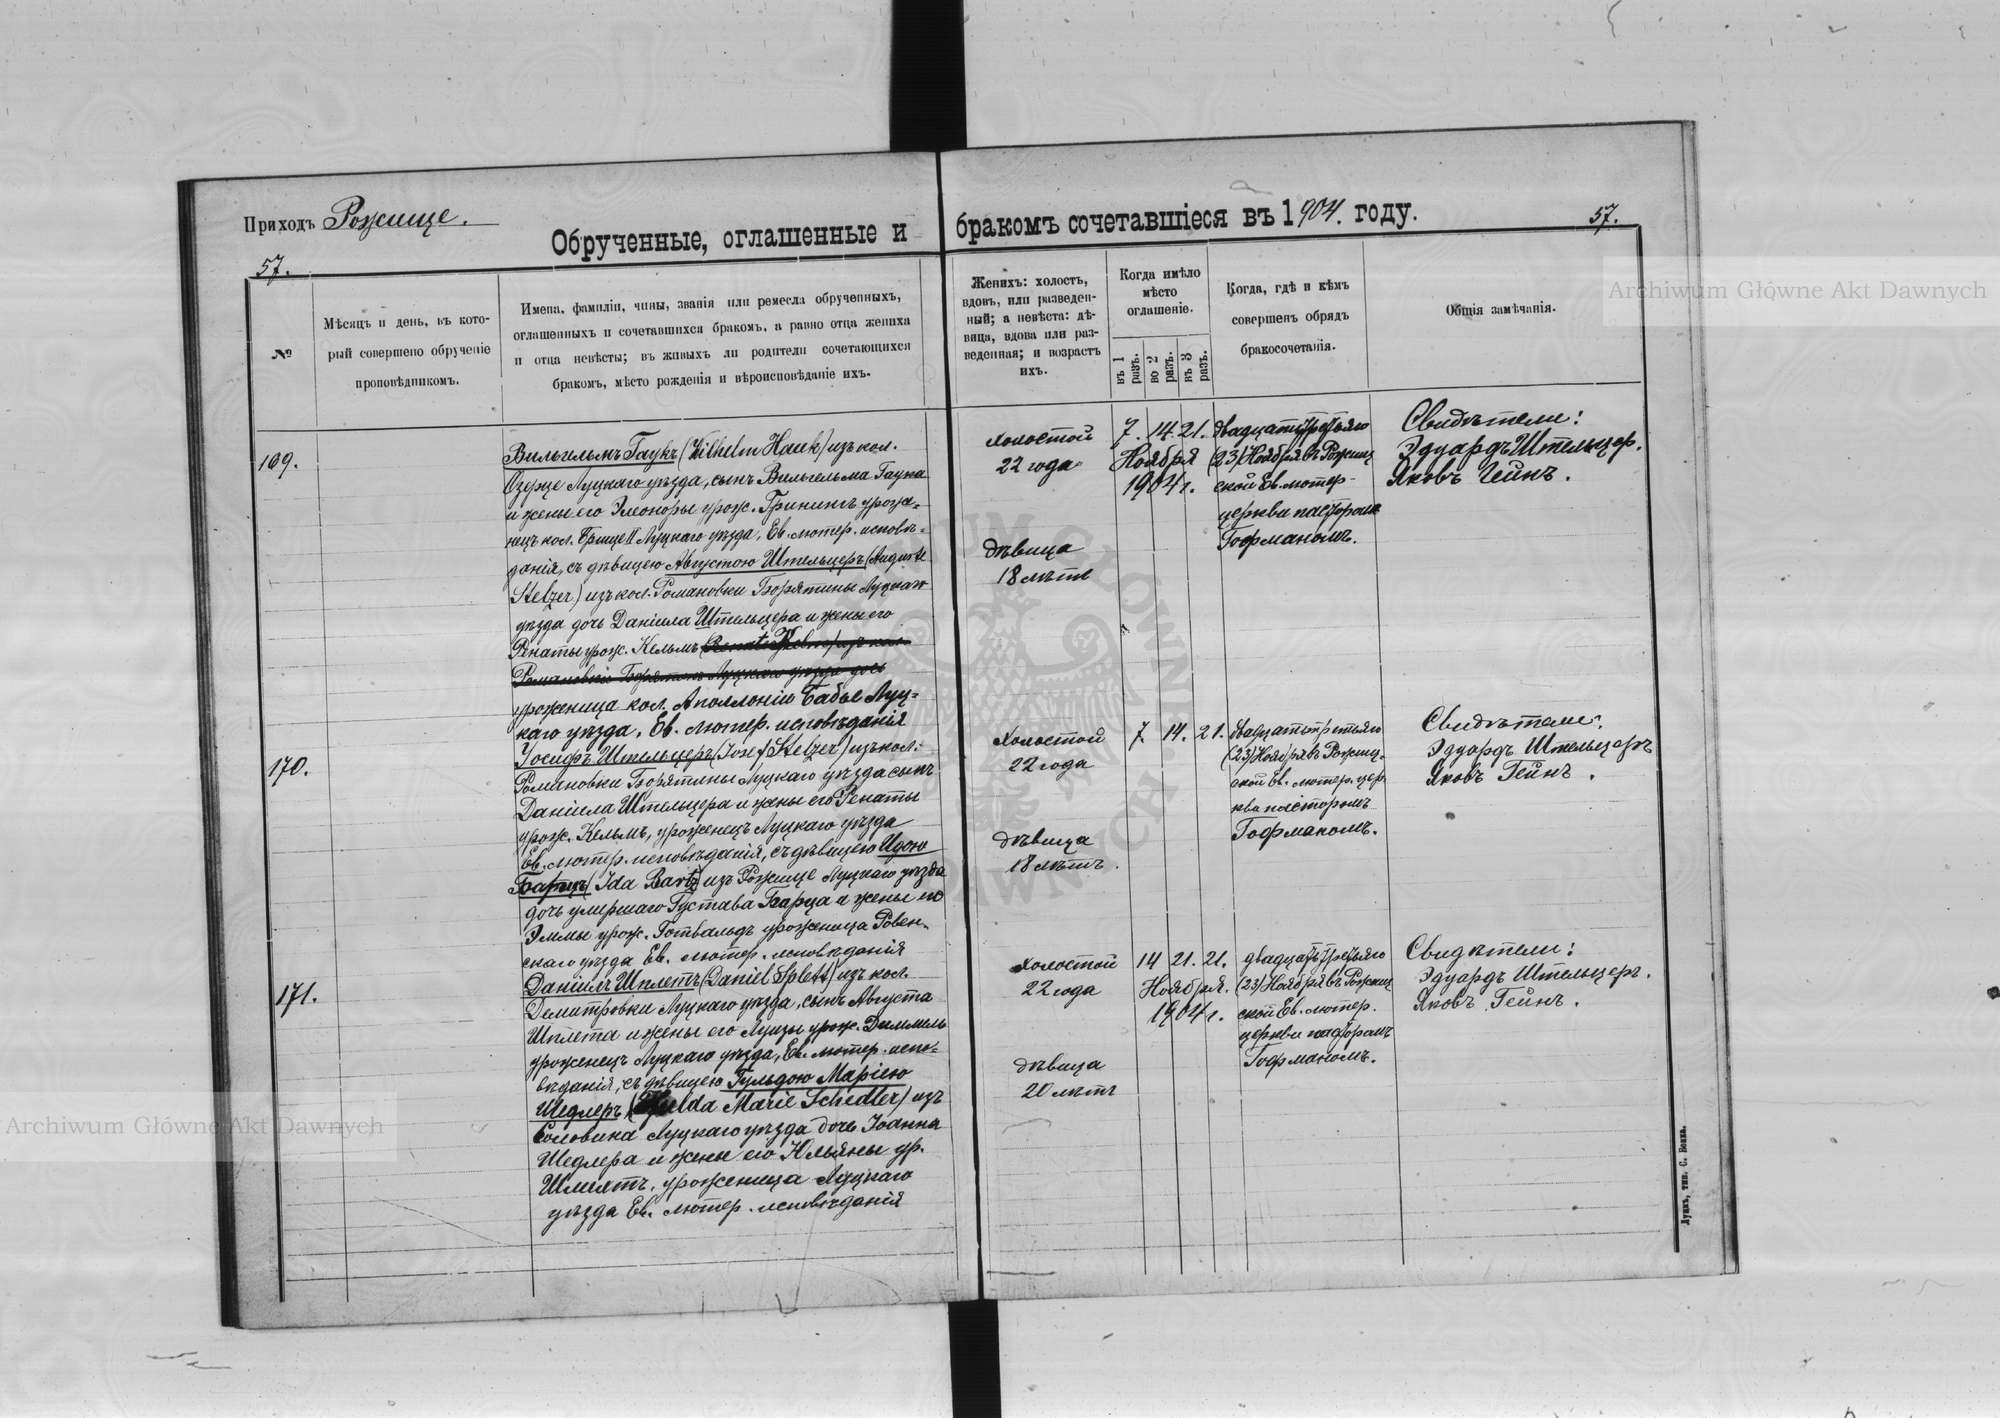 Приходъ Рожище.
Обрученные, оглашенные и бракомъ сочетавшіеся въ 1904. году.
57.
57.
№
Мѣсяцъ и день, въ кото-
рый совершено обрученіе
проповѣдникомъ.
Имена, фамиліи, чины, званія или ремесла обрученныхъ,
оглашенныхъ и сочетавшихся бракомъ, а равно отца жениха
и отца невѣсты; въ живыхъ ли родители сочетающихся
бракомъ, мѣсто рожденія и вѣроисповѣданіе ихъ.
Женихъ: холостъ,
вдовъ, или разведен-
ный; а невѣста: дѣ-
вица, вдова или раз-
веденная; и возрастъ
ихъ.
Когда имѣло
мѣсто
оглашеніе.
въ 1 разъ.
во 2 разъ.
въ 3 разъ.
Когда, гдѣ и кѣмъ
совершенъ обрядъ
бракосочетанія.
Общія замѣчанія.
169.
Вильгельмъ Гаукъ (Wilhelm Hauk) изъ кол.
Озерце Луцкаго уѣзда, сынъ Вильгельма Гаука
и жены его Элеоноры урож. Грининъ урож-
нецъ кол. Луцкаго уѣзда, Ев. лютер. исповѣ-
данія, съ дѣвицею Августою Штельцеръ (Auguste
Stelzer) изъ кол. Романовки Борятины Луцкаго
уѣзда дочь Даніила Штельцера и жены его
Ренаты урож. Кельмъ
уроженица кол. Аполлонія Бабье Луц-
каго уѣзда, Ев. лютер. исповѣданія
холостой
22 года
дѣвица
18 лѣтъ
7. 14. 21.
Ноября
1904 г.
двадцатьтретьяго
(23) Ноября въ Рожищ
ской Ев. лютер-
церкви пасторомъ
Гофманомъ.
Свидѣтели:
Эдуардъ Штельцер.
Яковъ Гейнъ.
170.
Іосифъ Штельцеръ (Josef Stelzer) изъ кол.
Романовки Борятины Луцкаго уѣзда сынъ
Даніила Штельцера и жены его Ренаты
урож. Кельмъ, уроженецъ Луцкаго уѣзда
Ев. лютер. исповѣданія, съ дѣвицею Идою
Барцъ (Ida Bartz) изъ Рожище Луцкаго уѣзда
дочь умершаго Густава Барца и жены его
Эммы урож. Готвальдъ уроженица Ровен-
скаго уѣзда Ев. лютер. исповѣданія
холостой
22 года
дѣвица
18 лѣтъ.
7. 14. 21.
двадцатьтретьяго
(23) Ноября въ Рожищ-
ской Ев. лютер. цер-
кви пасторомъ
Гофманомъ.
Свидѣтели:
Эдуардъ Штельцеръ
Яковъ Гейнъ.
171.
Даніилъ Шплетъ (Daniel Splett) изъ кол.
Димитровки Луцкаго уѣзда, сынъ Августа
Шплета и жены его Луизы урож. Диммель
уроженецъ Луцкаго уѣзда, Ев. лютер. испо-
вѣданія, съ дѣвицею Гульдою Маріею
Шедлеръ (Hulda Marie Schedler) изъ
Соловина Луцкаго уѣзда дочь Іоанна
Шедлера и жены его Юльяны ур.
Шмидтъ, уроженица Луцкаго
уѣзда Ев. лютер. исповѣданія
холостой
22 года
дѣвица
20 лѣтъ
14 21. 21.
Ноября.
1904 г.
двадцатьтретьяго
(23) Ноября въ Рожищ
ской Ев. лютер.
церкви пасторомъ
Гофманомъ.
Свидѣтели:
Эдуардъ Штельцеръ.
Яковъ Гейнъ.
Луцкъ, тип. С. Бокка.
Archiwum Główne Akt Dawnych
Archiwum Główne Akt Dawnych